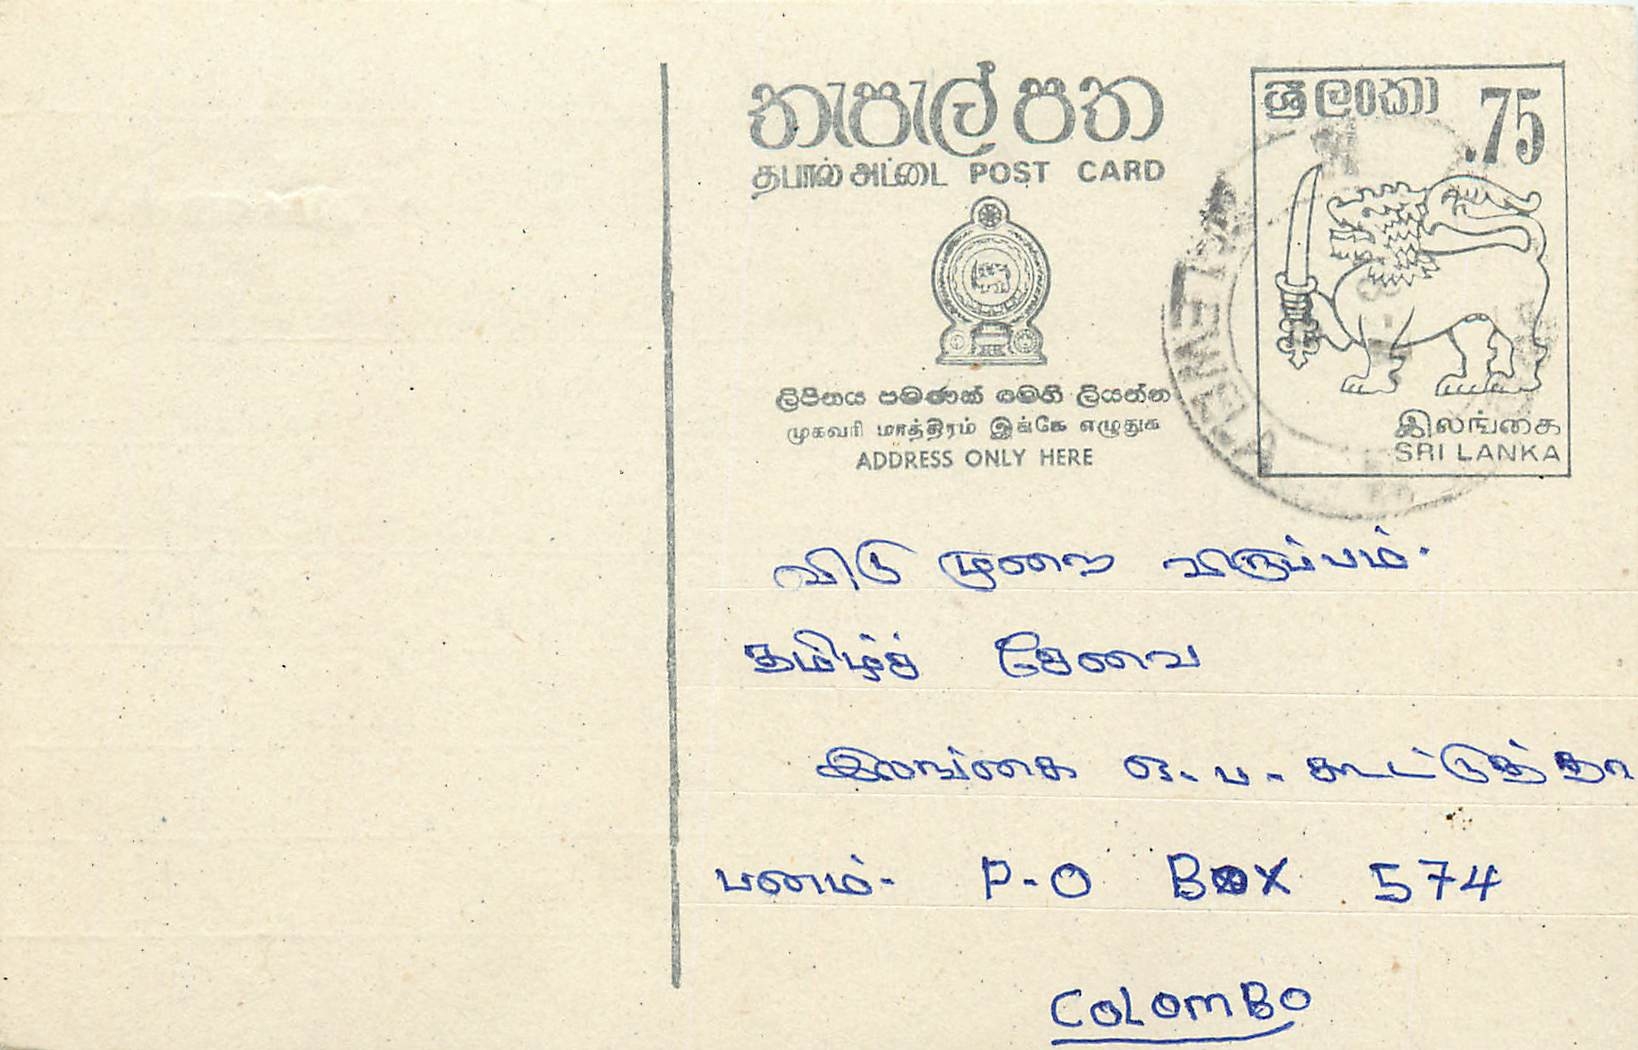 තැපැල් පත
தபால் அட்டை POST CARD
ශ්‍රී ලංකා
.75
ලිපිනය පමණක් මෙහි ලියන්න
முகவரி மாத்திரம் இங்கே எழுதுக
ADDRESS ONLY HERE
இலங்கை
SRI LANKA
விடு முறை விருப்பம்.
தமிழ்ச் சேவை
இலங்கை ஒ.ப. கூட்டுத்தா
பனம். P.O BOX 574
COLOMBO